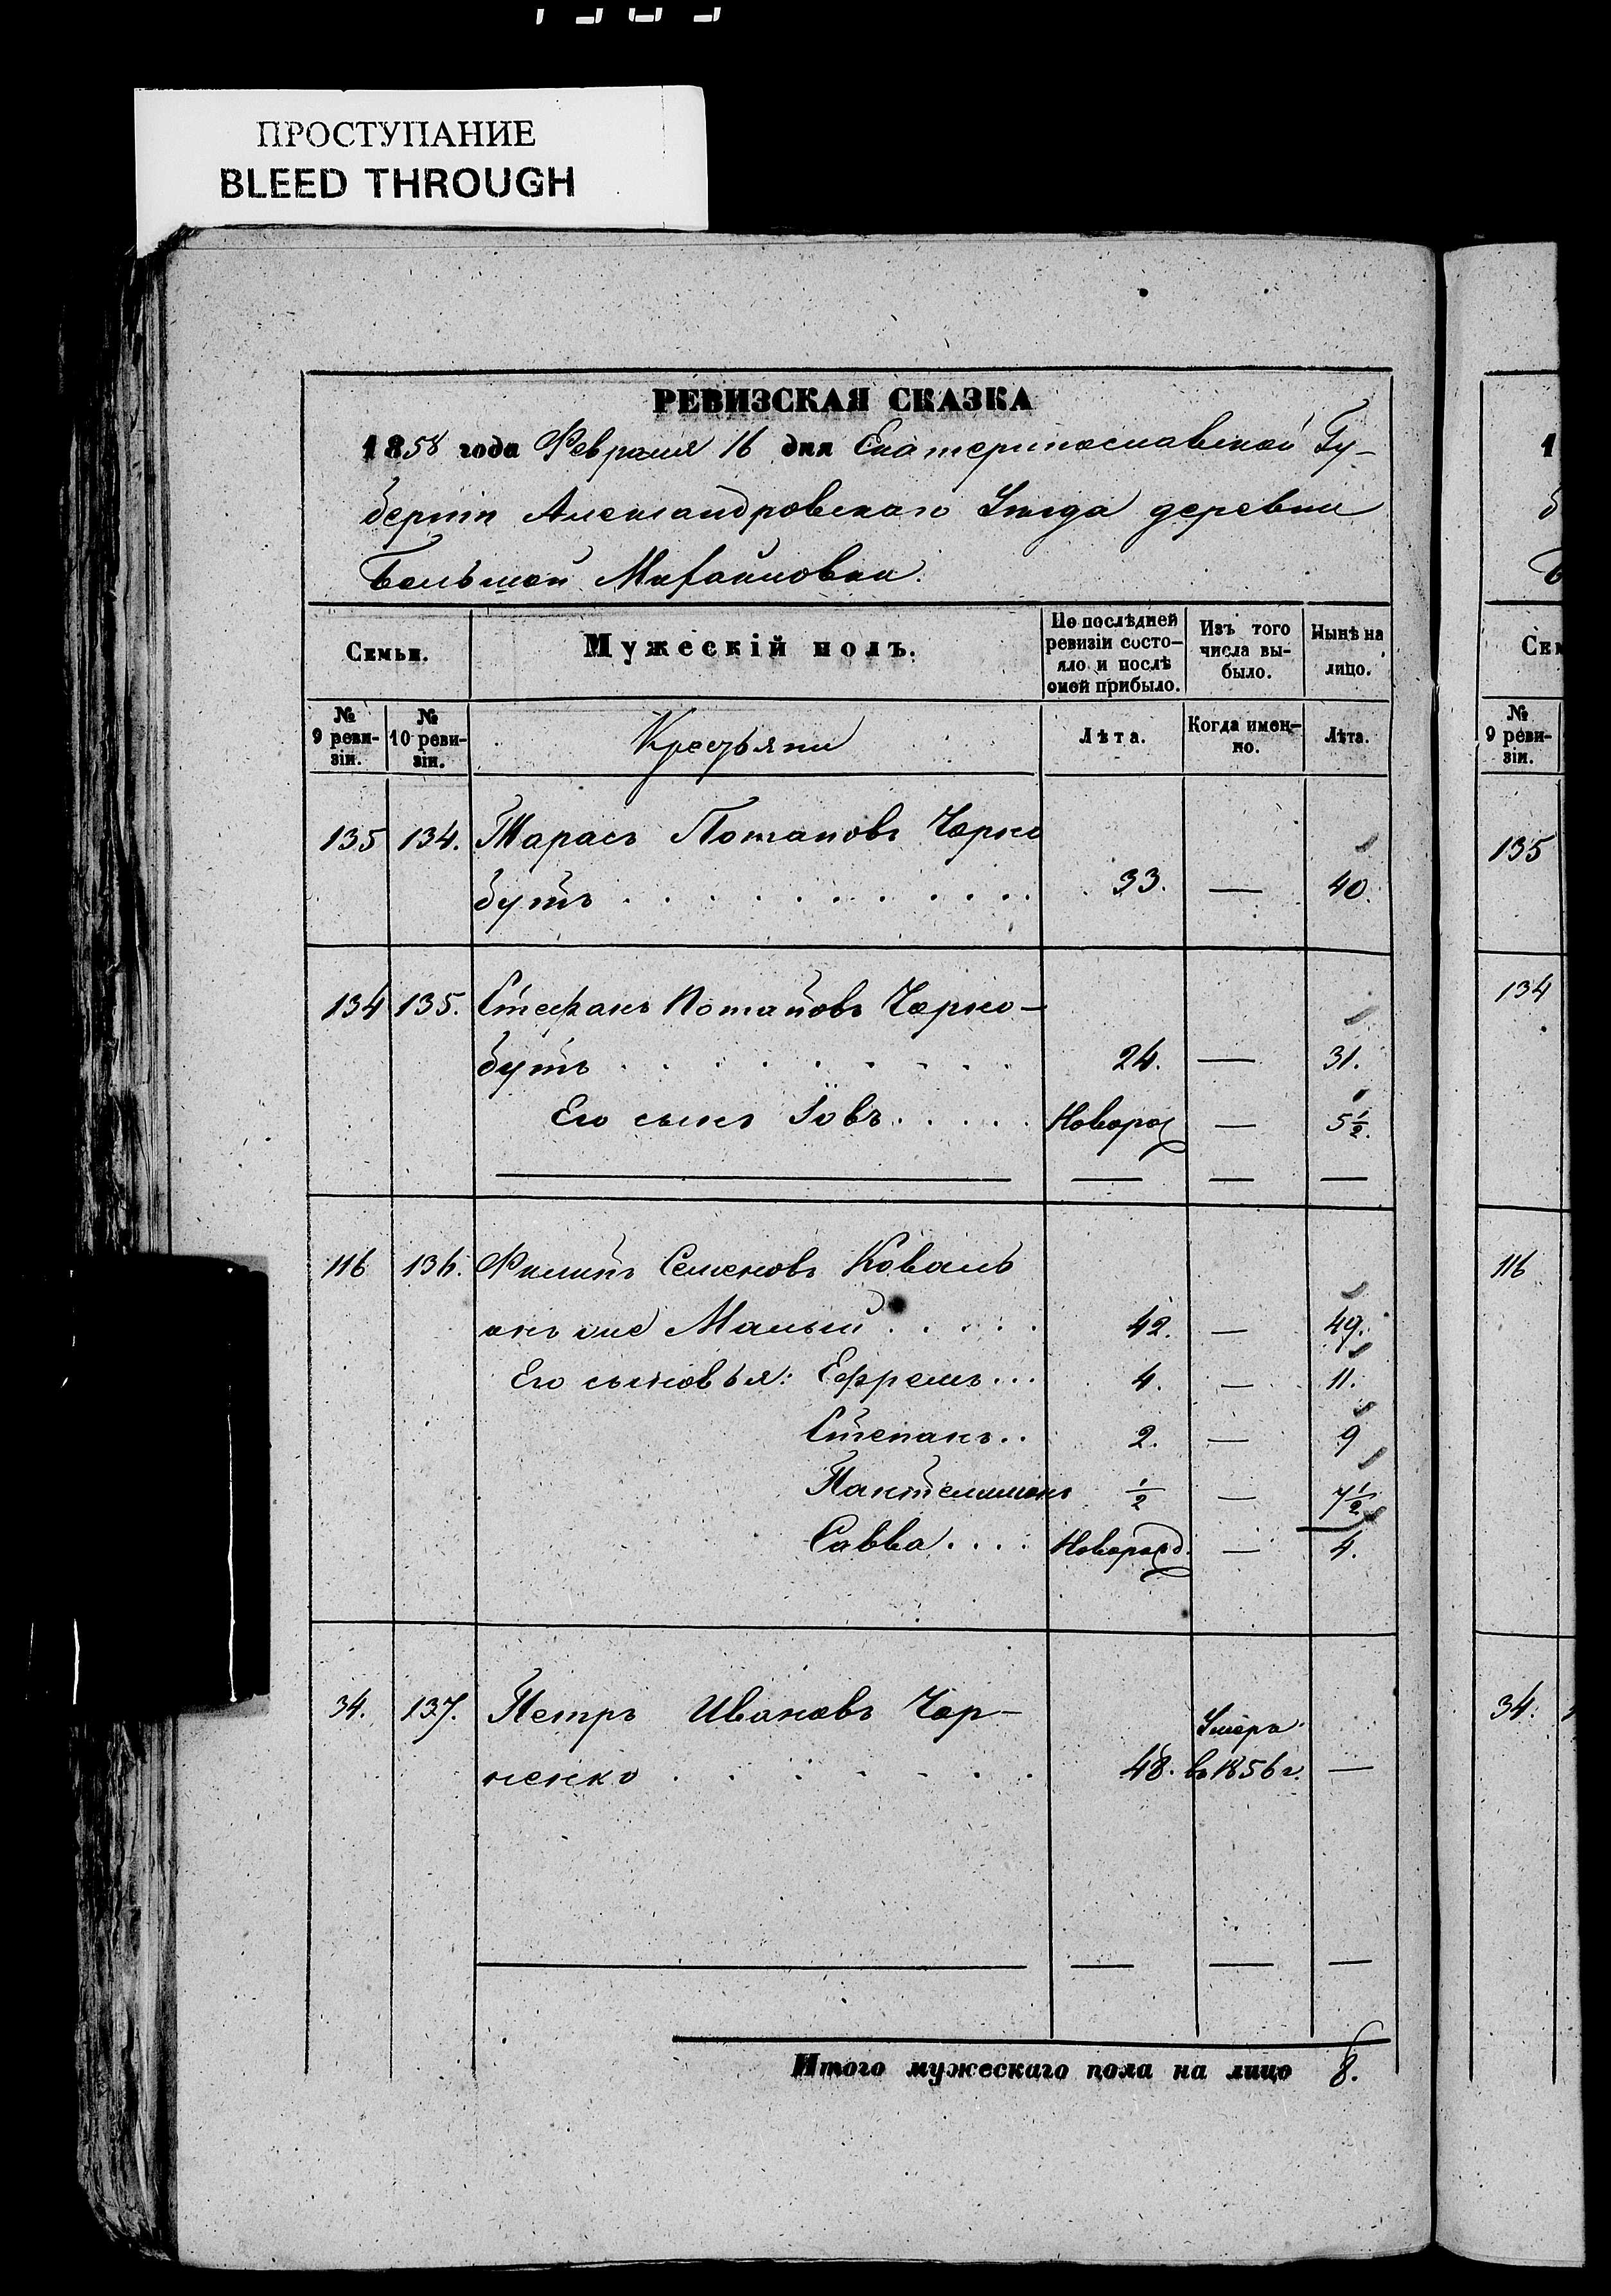 ПРОСТУПАНИЕ
BLEED THROUGH
РЕВИЗСКАЯ СКАЗКА
1858 года Февраля 16 дня Екатеринославской Гу-
берніи Александровскаго Уѣзда деревни
Большой Михайловки.
Семьи.
Мужескій полъ.
По послѣдней ревизіи состо-яло и послѣ оной прибыло.
Изъ того числа вы-было.
Нынѣ на лицо.
№ 9 реви-зіи.
№ 10 реви-зіи.
Крестьяни
Лѣта.
Когда имен-но.
Лѣта.
135 134. Тарасъ Потаповъ Чорно
бутъ . . . . . . . . . . 33. — 40.
134 135. Стефанъ Потаповъ Чорно-
бутъ . . . . . . . . 24. — 31.
Его сынъ Іовъ . . . . Новорож — 5½.
116 136. Филипъ Семеновъ Коваль
онъ же Малый . . . . . 42. — 49.
Его сыновья: Ефремъ... 4. — 11.
Степанъ.. 2. — 9
Пантелимонъ ½ — 7½
Савва.... Новорожд. — 4.
34. 137. Петръ Ивановъ Чор-
ненко . . . . . . . 48. Умеръ в 1856 г. —
Итого мужескаго пола на лицо 8.
1
б
Б
Сем
№ 9 реви-зіи.
135
134
116
34.